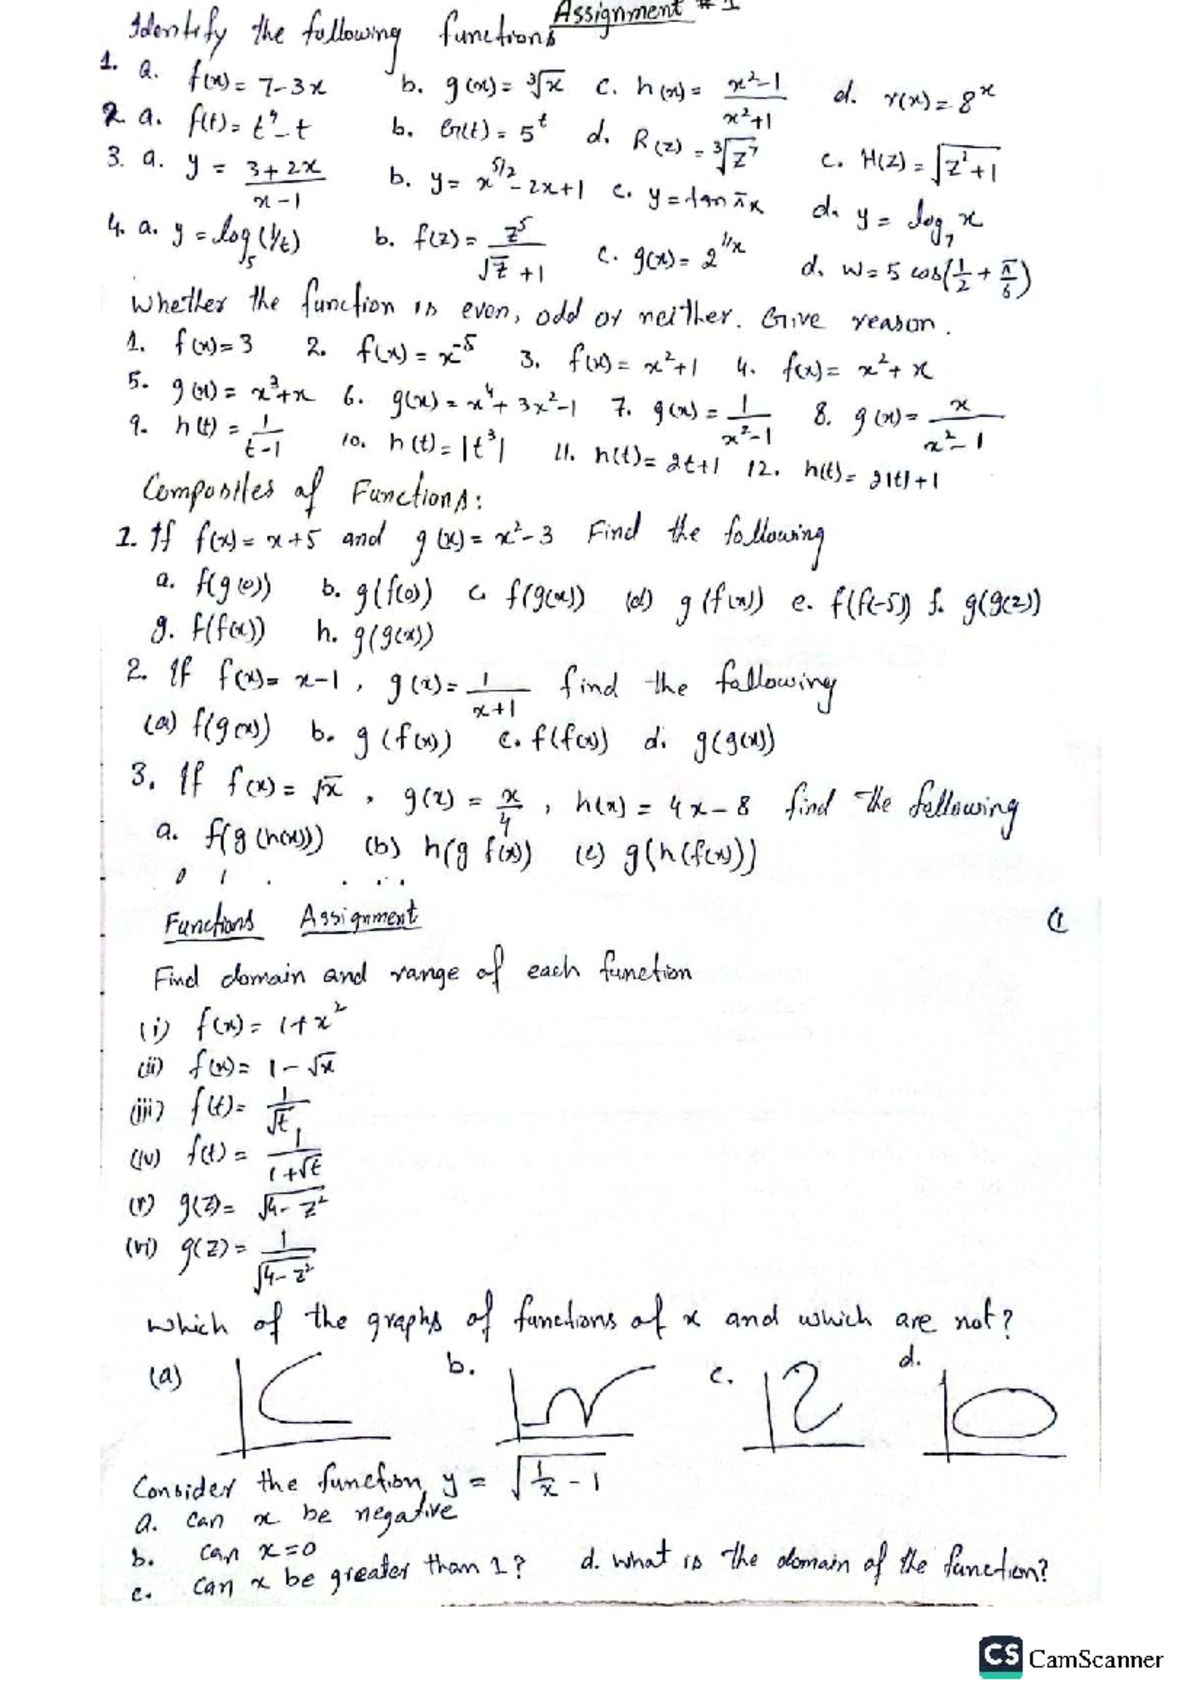 Assignment # 1
Identify the following functions
1. a. f(x) = 7-3x b. g(x) = ∛x c. h(x) = x²-1/x²+1 d. r(x) = 8ˣ
2. a. f(t) = t⁴-t b. G(t) = 5ᵗ d. R(z) = ∛z⁷ c. H(z) = √z²+1
3. a. y = 3+2x/x-1 b. y = x^5/2 - 2x+1 c. y = tan πx d. y = log₇ x
4. a. y = log₅(1/t) b. f(z) = z⁵/√z +1 c. g(x) = 2^1/x d. w = 5 cos(1/2 + π/6)
Whether the function is even, odd or neither. Give reason.
1. f(x) = 3 2. f(x) = x⁻⁵ 3. f(x) = x²+1 4. f(x) = x²+x
5. g(x) = x³+x 6. g(x) = x⁴+3x²-1 7. g(x) = 1/x²-1 8. g(x) = x/x²-1
9. h(t) = 1/t-1 10. h(t) = |t³| 11. h(t) = 2t+1 12. h(t) = 2|t|+1
Composites of Functions:
1. If f(x) = x+5 and g(x) = x²-3 Find the following
a. f(g(0)) b. g(f(0)) c. f(g(x)) (d) g(f(x)) e. f(f(-5)) f. g(g(2))
g. f(f(x)) h. g(g(x))
2. If f(x) = x-1, g(x) = 1/x+1 find the following
(a) f(g(x)) b. g(f(x)) c. f(f(x)) d. g(g(x))
3. If f(x) = √x, g(x) = x/4, h(x) = 4x-8 find the following
a. f(g(h(x))) (b) h(g f(x)) (c) g(h(f(x)))
Functions Assignment
Find domain and range of each function
(i) f(x) = 1+x²
(ii) f(x) = 1-√x
(iii) f(t) = 1/√t
(iv) f(t) = 1/1+√t
(v) g(z) = √4-z²
(vi) g(z) = 1/√4-z²
Which of the graphs of functions of x and which are not?
(a) b. c. d.
Consider the function y = √1/x - 1
a. can x be negative
b. can x=0
c. can x be greater than 1? d. what is the domain of the function?
CS CamScanner